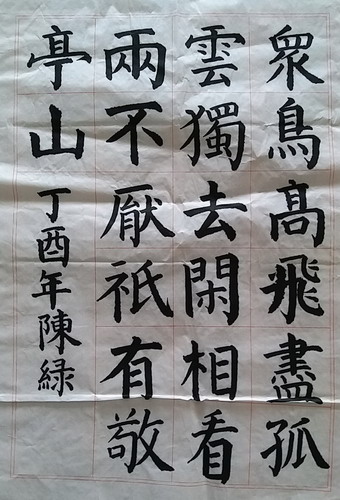 眾鳥高飛盡孤
雲獨去閑相看
兩不厭祇有敬
亭山
丁酉年陳緑